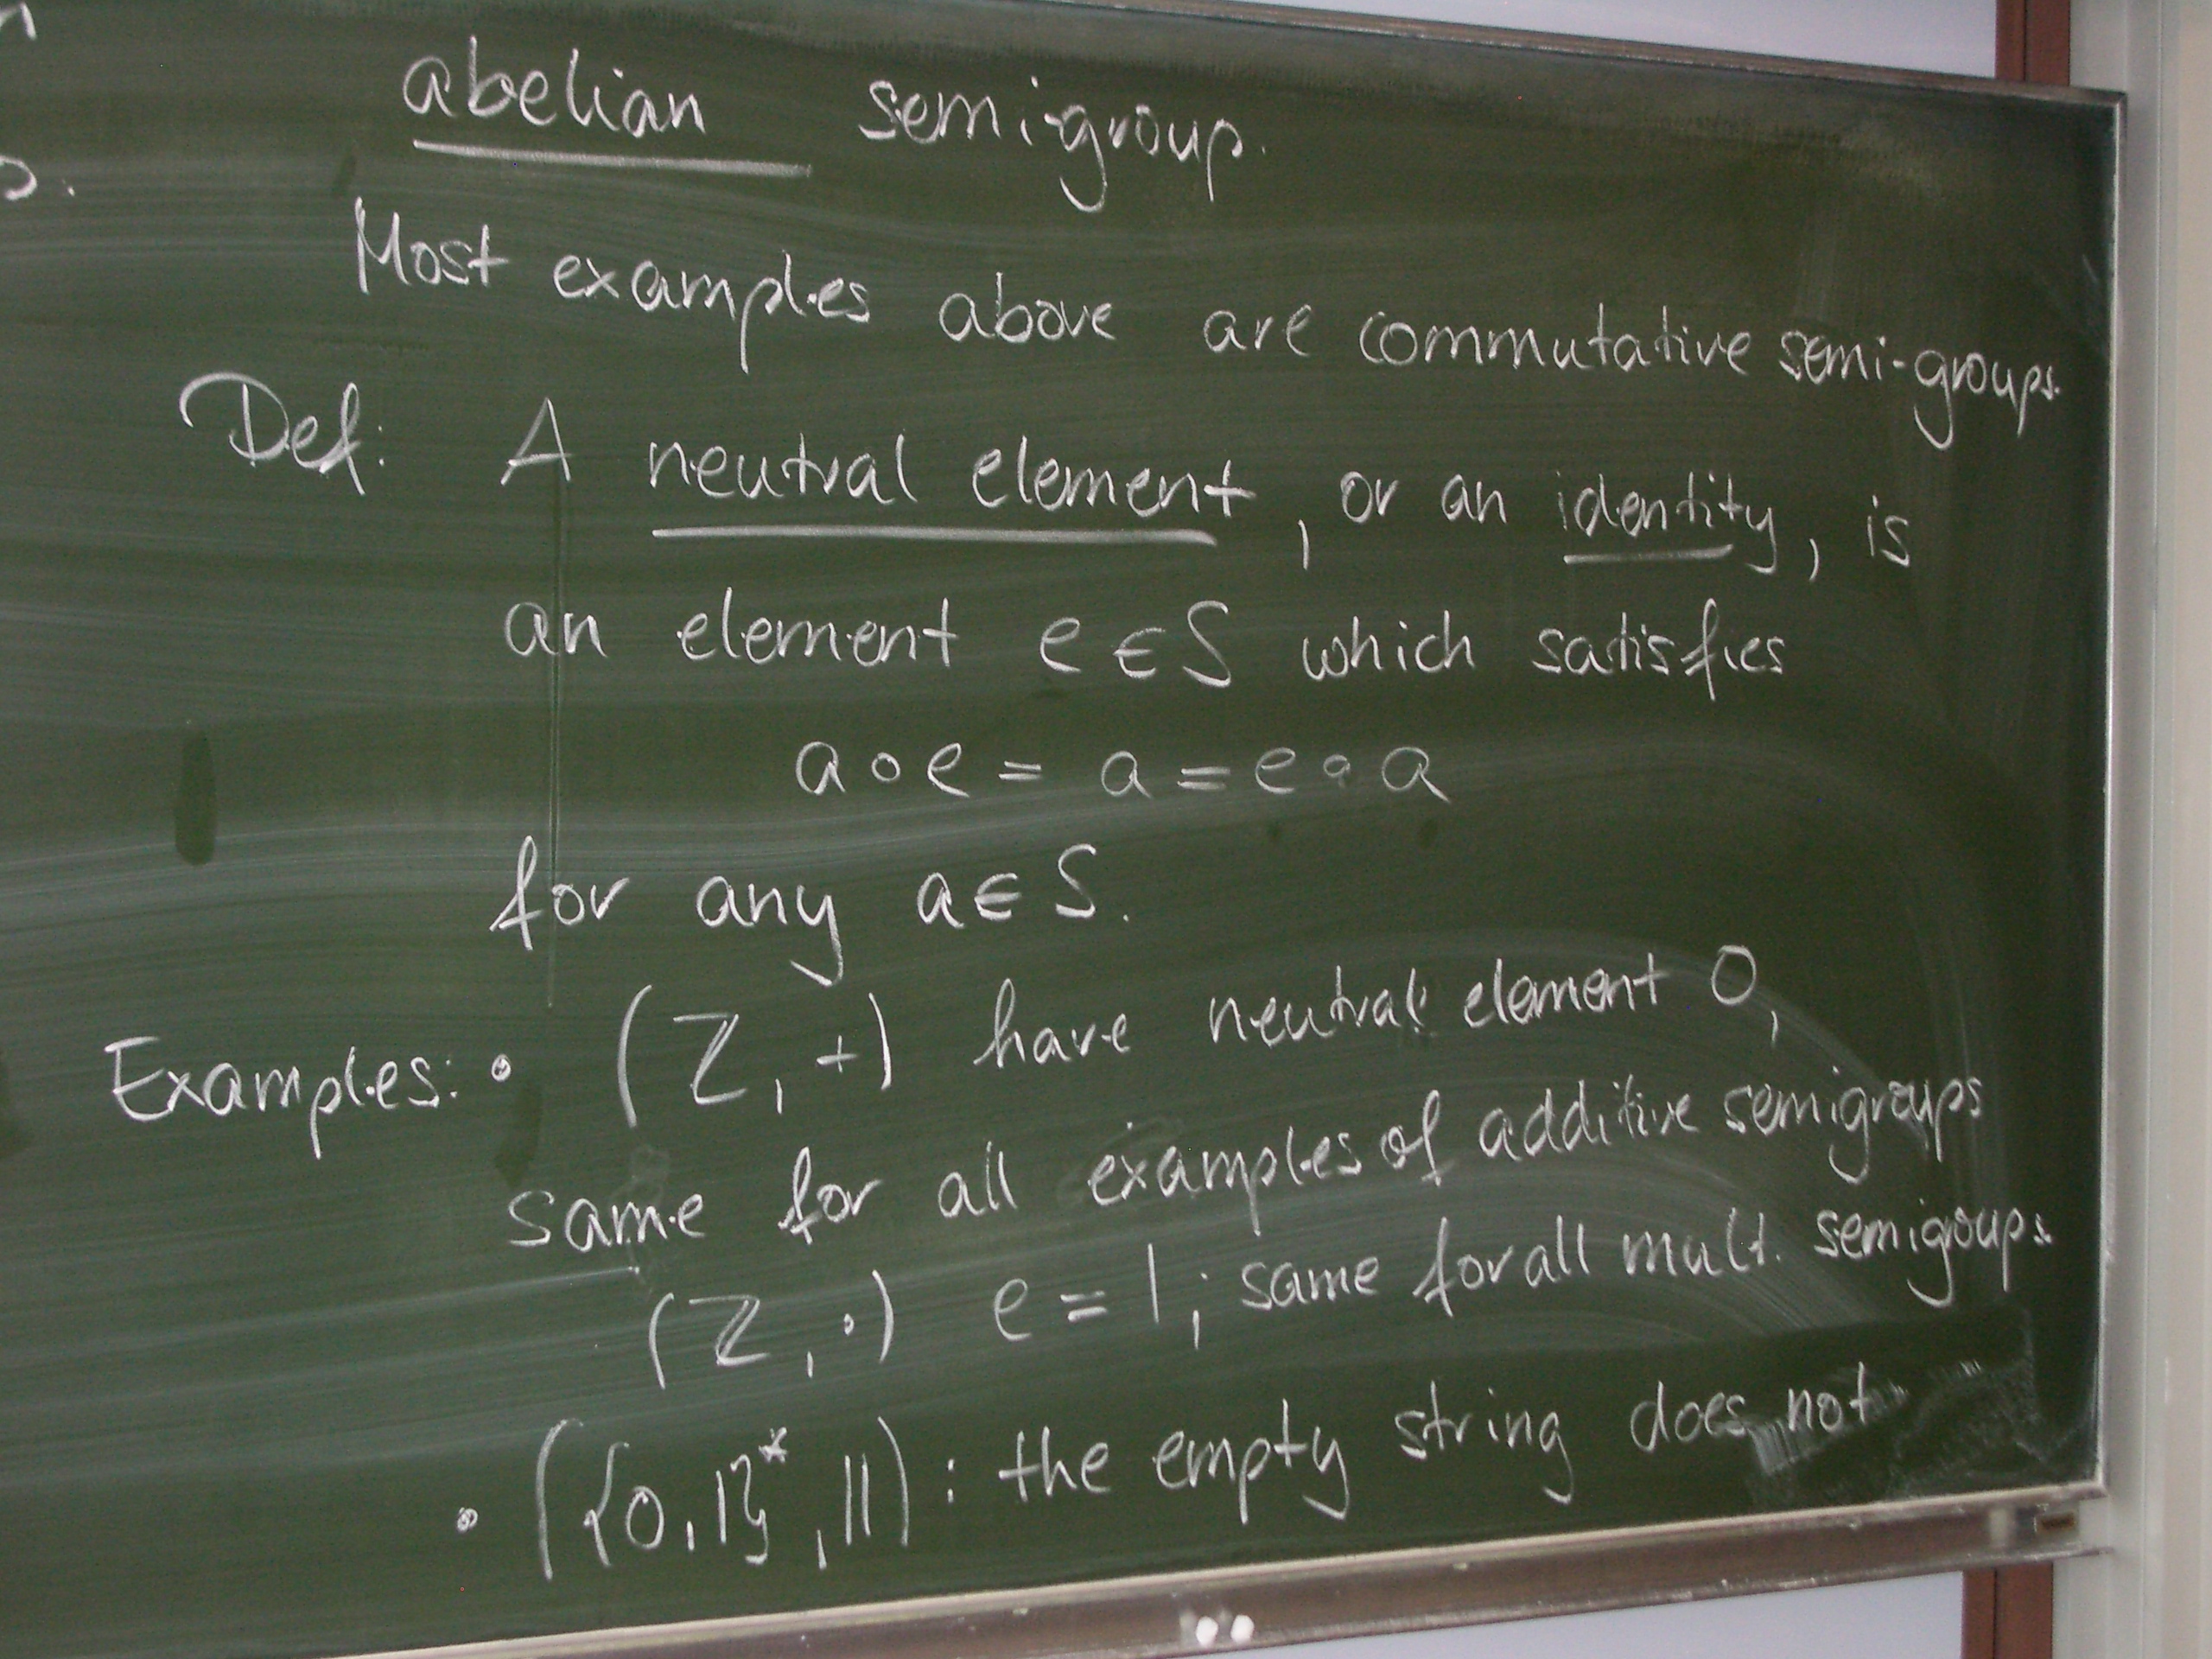 abelian semigroup.
Most examples above are commutative semi-groups.
Def: A neutral element, or an identity, is
an element e ∈ S which satisfies
a ∘ e = a = e ∘ a
for any a ∈ S.
Examples: • (ℤ, +) have neutral element 0,
same for all examples of additive semigroups
(ℤ, ·) e = 1; same for all mult. semigroups.
• ({0,1}*, ||) : the empty string does not